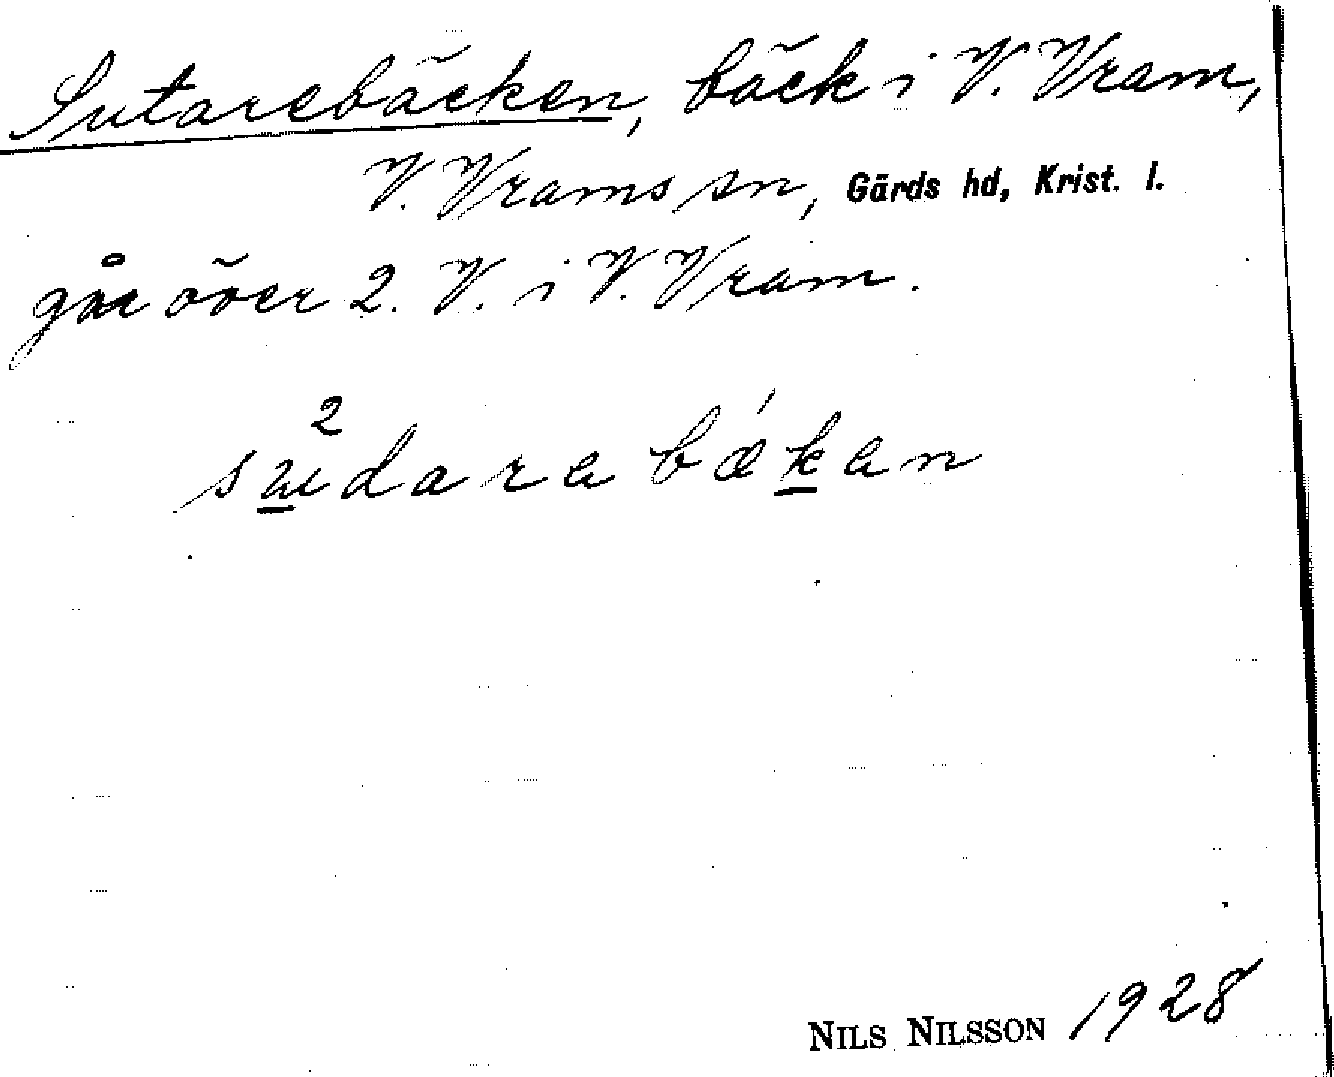 Sutarebäcken, bäck i V. Vram,
V. Vrams sn, Gärds hd, Krist. l.
går över 2. V. i V. Vram.
2
su̲darabǽk̲an
NILS NILSSON 1928